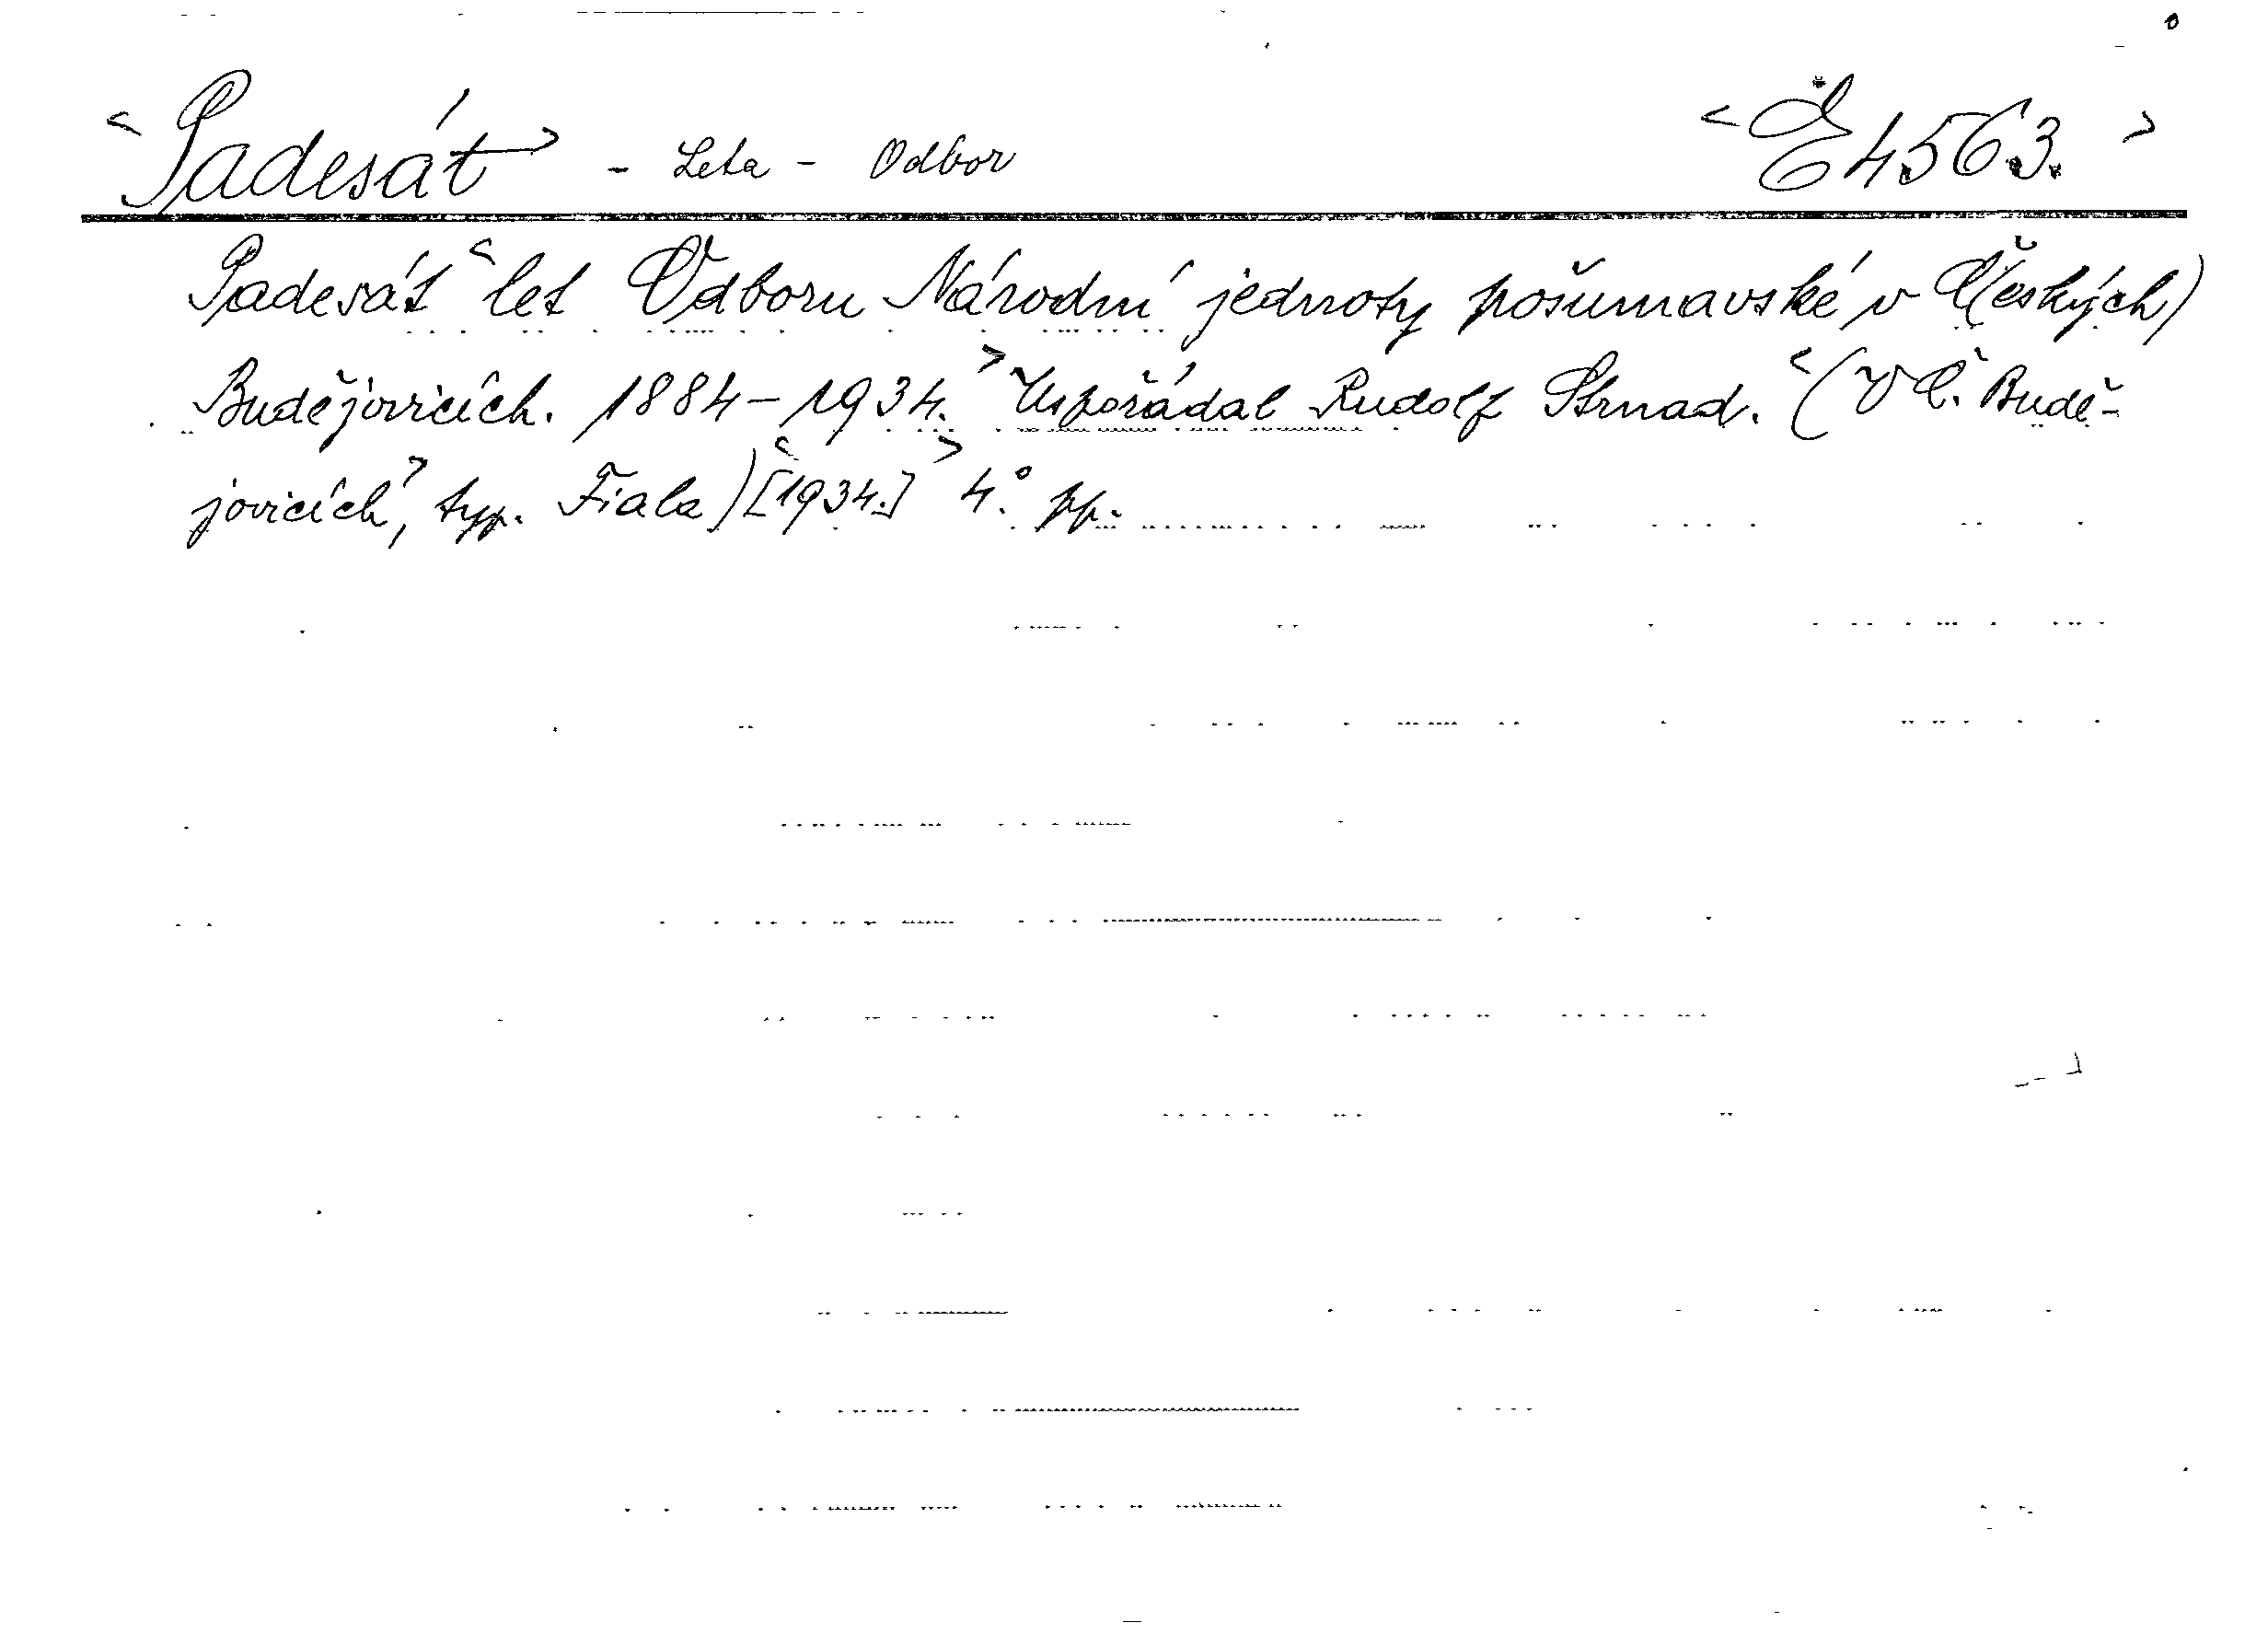 <Padesát> - Leta - Odbor <Ě4563.>
Padesát <let Odboru Národní jednoty pošumavské v Č(eských)
Budějovicích. 1884-1934.> Uspořádal Rudolf Strnad. <(V Č. Budě-
jovicích>, typ. Fiala) <[1934.]> 4.° pp.